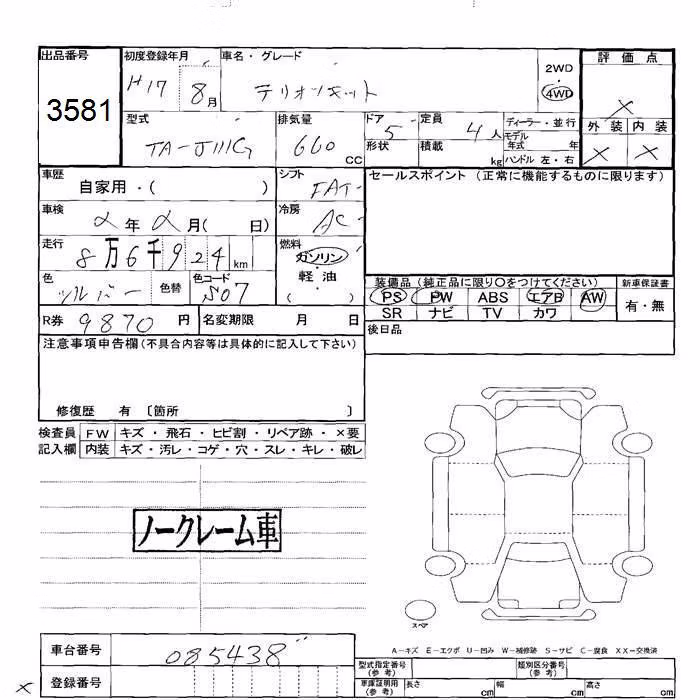 出品番号 初度登録年月 車名・グレード 2WD 評価点
3581 H17 8月 テリオスキット 4WD ×
外装 内装
型式 排気量 ドア 定員 ディーラー・並行
TA-J111G 660cc 5 4人 モデル年式 年
形状 積載 kg ハンドル 左・右 × ×
車歴 自家用・( ) シフト FAT セールスポイント (正常に機能するものに限ります)
車検 2年2月( 日) 冷房 AC
走行 8万6千924km 燃料 ガソリン
軽油
( )
色 シルバー 色替 色コード S07
装備品 (純正品に限り○をつけてください) 新車保証書
PS PW ABS エアB AW 有・無
SR ナビ TV カワ
R券 9870円 名変期限 月 日 後日品
注意事項申告欄(不具合内容等は具体的に記入して下さい)
修復歴 有 〔箇所 〕
検査員 FW キズ・飛石・ヒビ割・リペア跡・×要
記入欄 内装 キズ・汚レ・コゲ・穴・スレ・キレ・破レ
ノークレーム車
スペア
A-キズ E-エクボ U-凹み W-補修跡 S-サビ C-腐食 XX-交換済
車台番号 085438
型式指定番号(参考) 類別区分番号(参考)
× 登録番号
車庫証明用(参考) 長さ cm 幅 cm 高さ cm